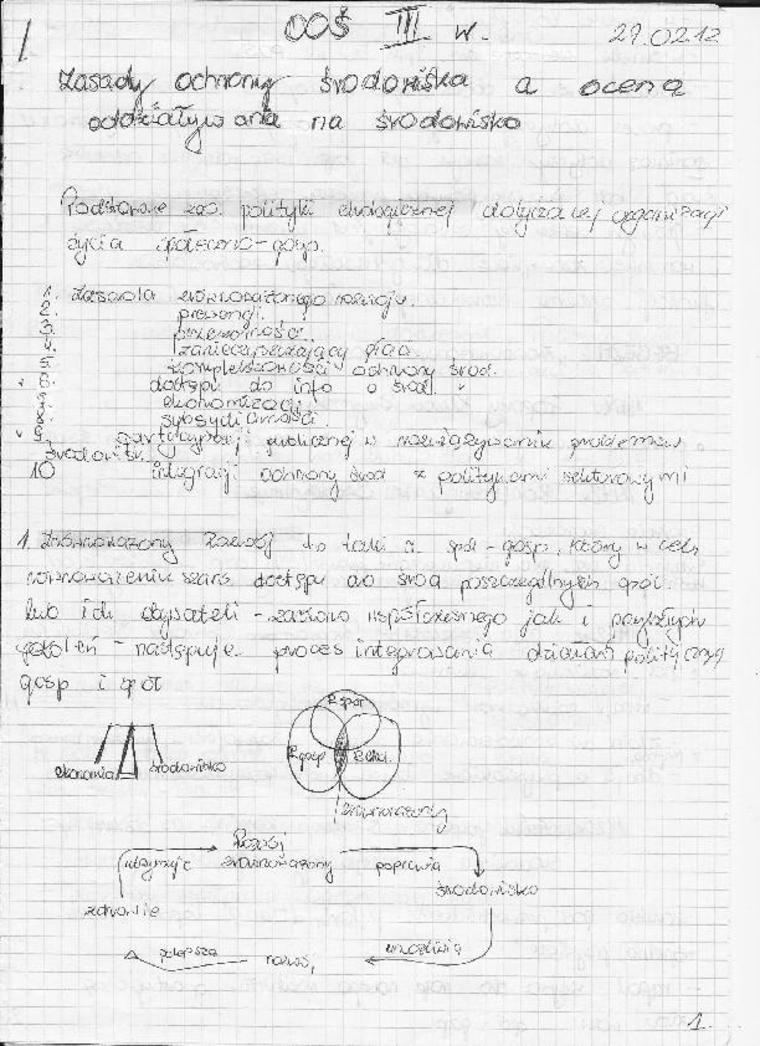 OOŚ III w. 29.02.12
Zasady ochrony środowiska a ocena
oddziaływania na środowisko
Podstawowe zas. polityki ekologicznej dotyczącej organizacji
życia społeczno-gosp.
1. Zasada zrównoważonego rozwoju.
2. prewencji.
3. przezorności.
4. zanieczyszczający płaci
5. kompleksowości ochrony środ.
6. dostępu do info o środ.
7. ekonomizacji
8. subsydiarności.
9. partycypacji publicznej w rozwiązywaniu problemów
środowisk.
10 integracji ochrony środ z politykami sektorowymi
1. Zrównoważony Rozwój to taki r. społ-gosp, który w celu
równoważenia szans dostępu do środ poszczególnych społ.
lub ich obywateli - zarówno współczesnego jak i przyszłych
pokoleń - następuje proces integrowania działań politycznych
gosp i społ
R społ
R gosp
R ekol.
ekonomia środowisko
zrównoważony
Rozwój
zrównoważony
utrzymuje
poprawia
środowisko
zdrowie
umożliwia
polepsza
rozwój
1.